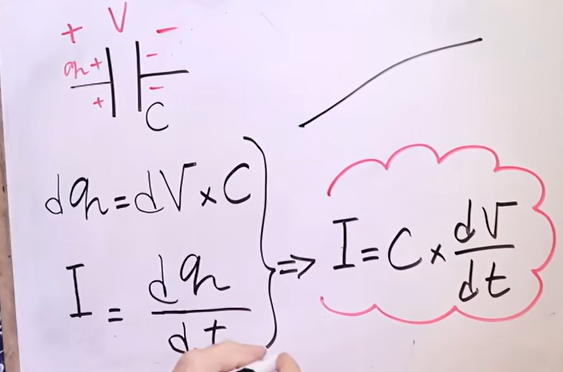 + V -
q + -
+ -
C
dq = dV × C
I = dq/dt
⇒ I = C × dV/dt